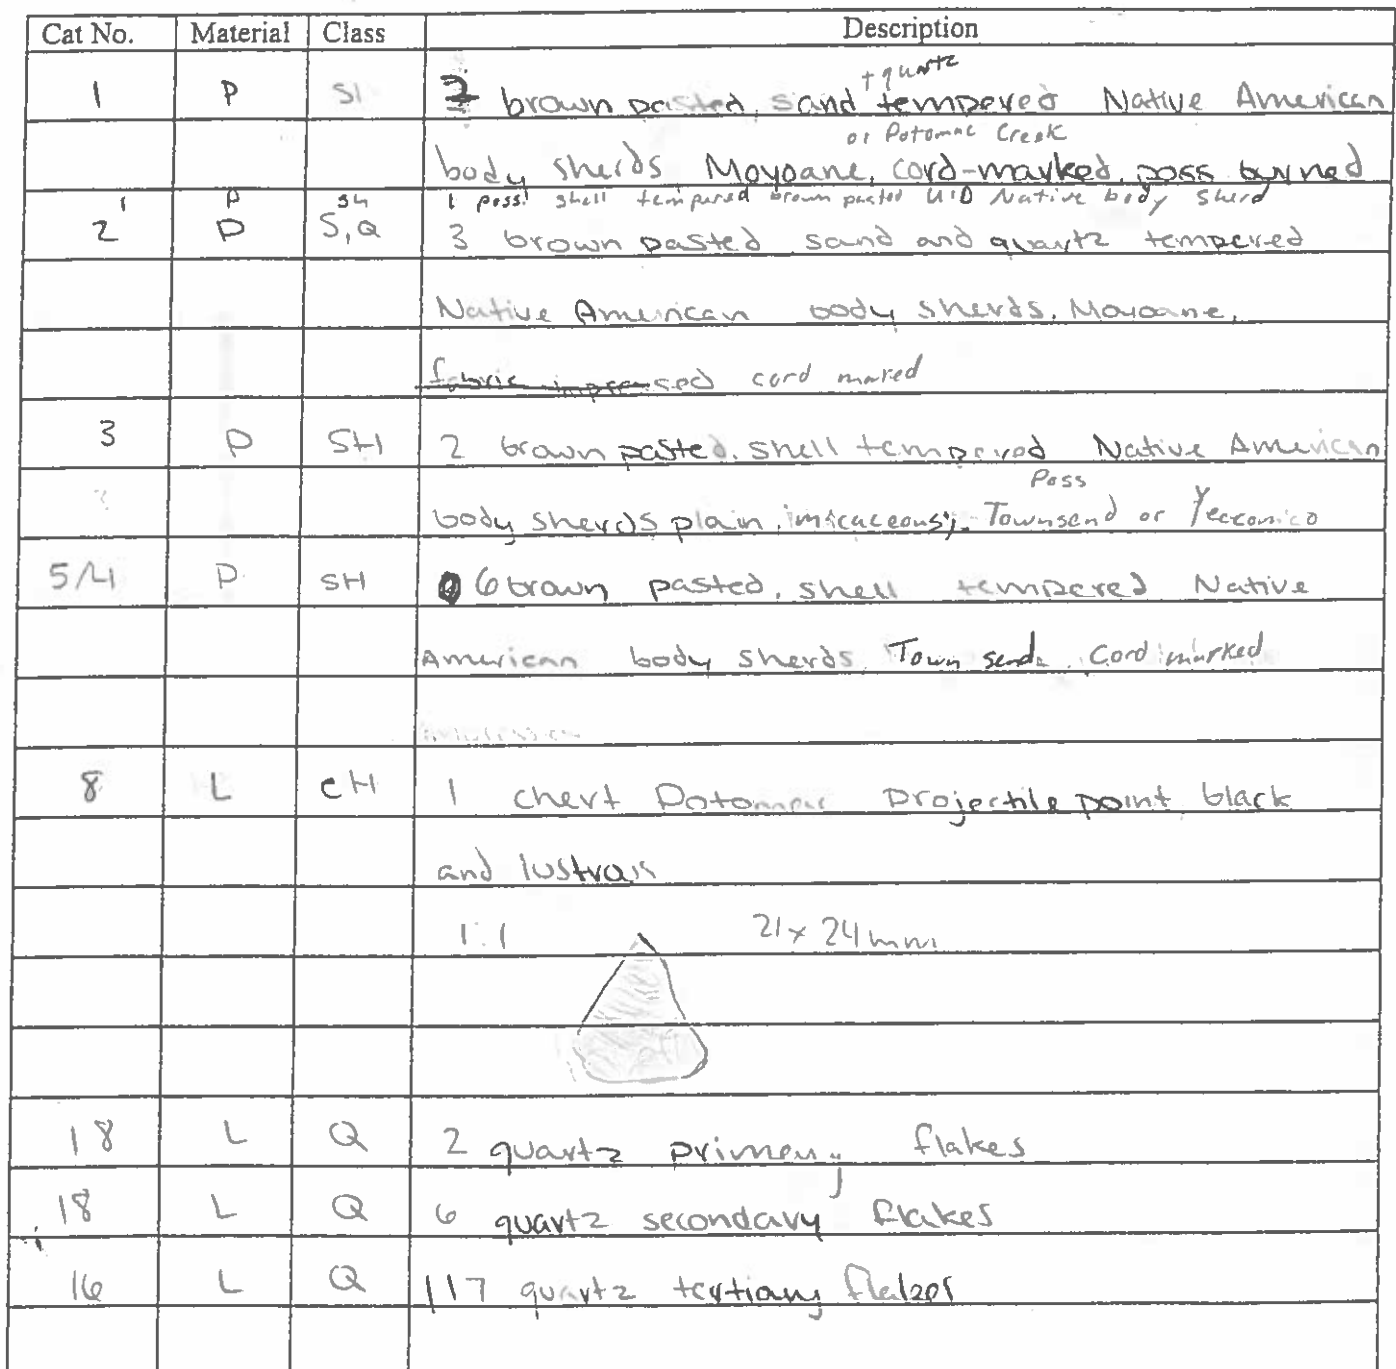 Cat No. Material Class Description
+ quartz
1 P SI 2 brown pasted, sand tempered Native American
or Potomac Creek
body sherds, Moyoane, cord-marked, poss burned
1 P sh 1 poss. shell tempered brown pasted UID Native body sherd
2 P S, Q 3 brown pasted sand and quartz tempered
Native American body sherds. Moyoane,
fabric impressed cord marked
3 P SH 2 brown pasted, shell tempered Native American
Poss
body sherds plain, micaceous, Townsend or Yeocomico
5/4 P SH 6 brown pasted, shell tempered Native
American body sherds, Townsend, Cord marked
8 L CH 1 chert Potomac projectile point, black
and lustrous
1:1 21 x 24 mm
18 L Q 2 quartz primary flakes
18 L Q 6 quartz secondary flakes
16 L Q 117 quartz tertiary flakes